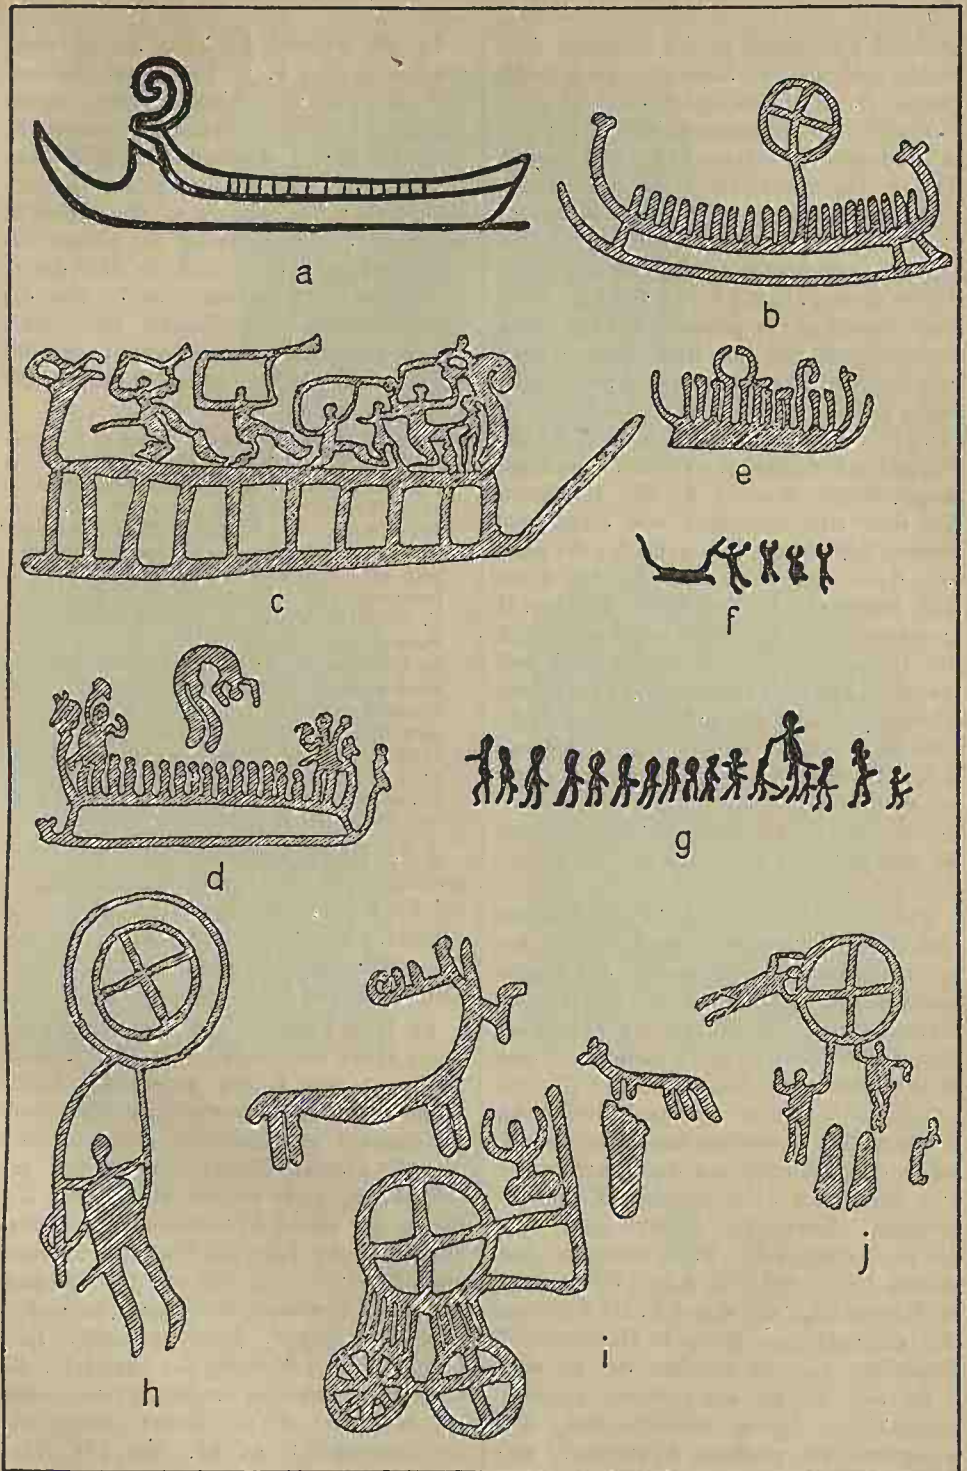 a
b
c
e
f
d
g
h
i
j